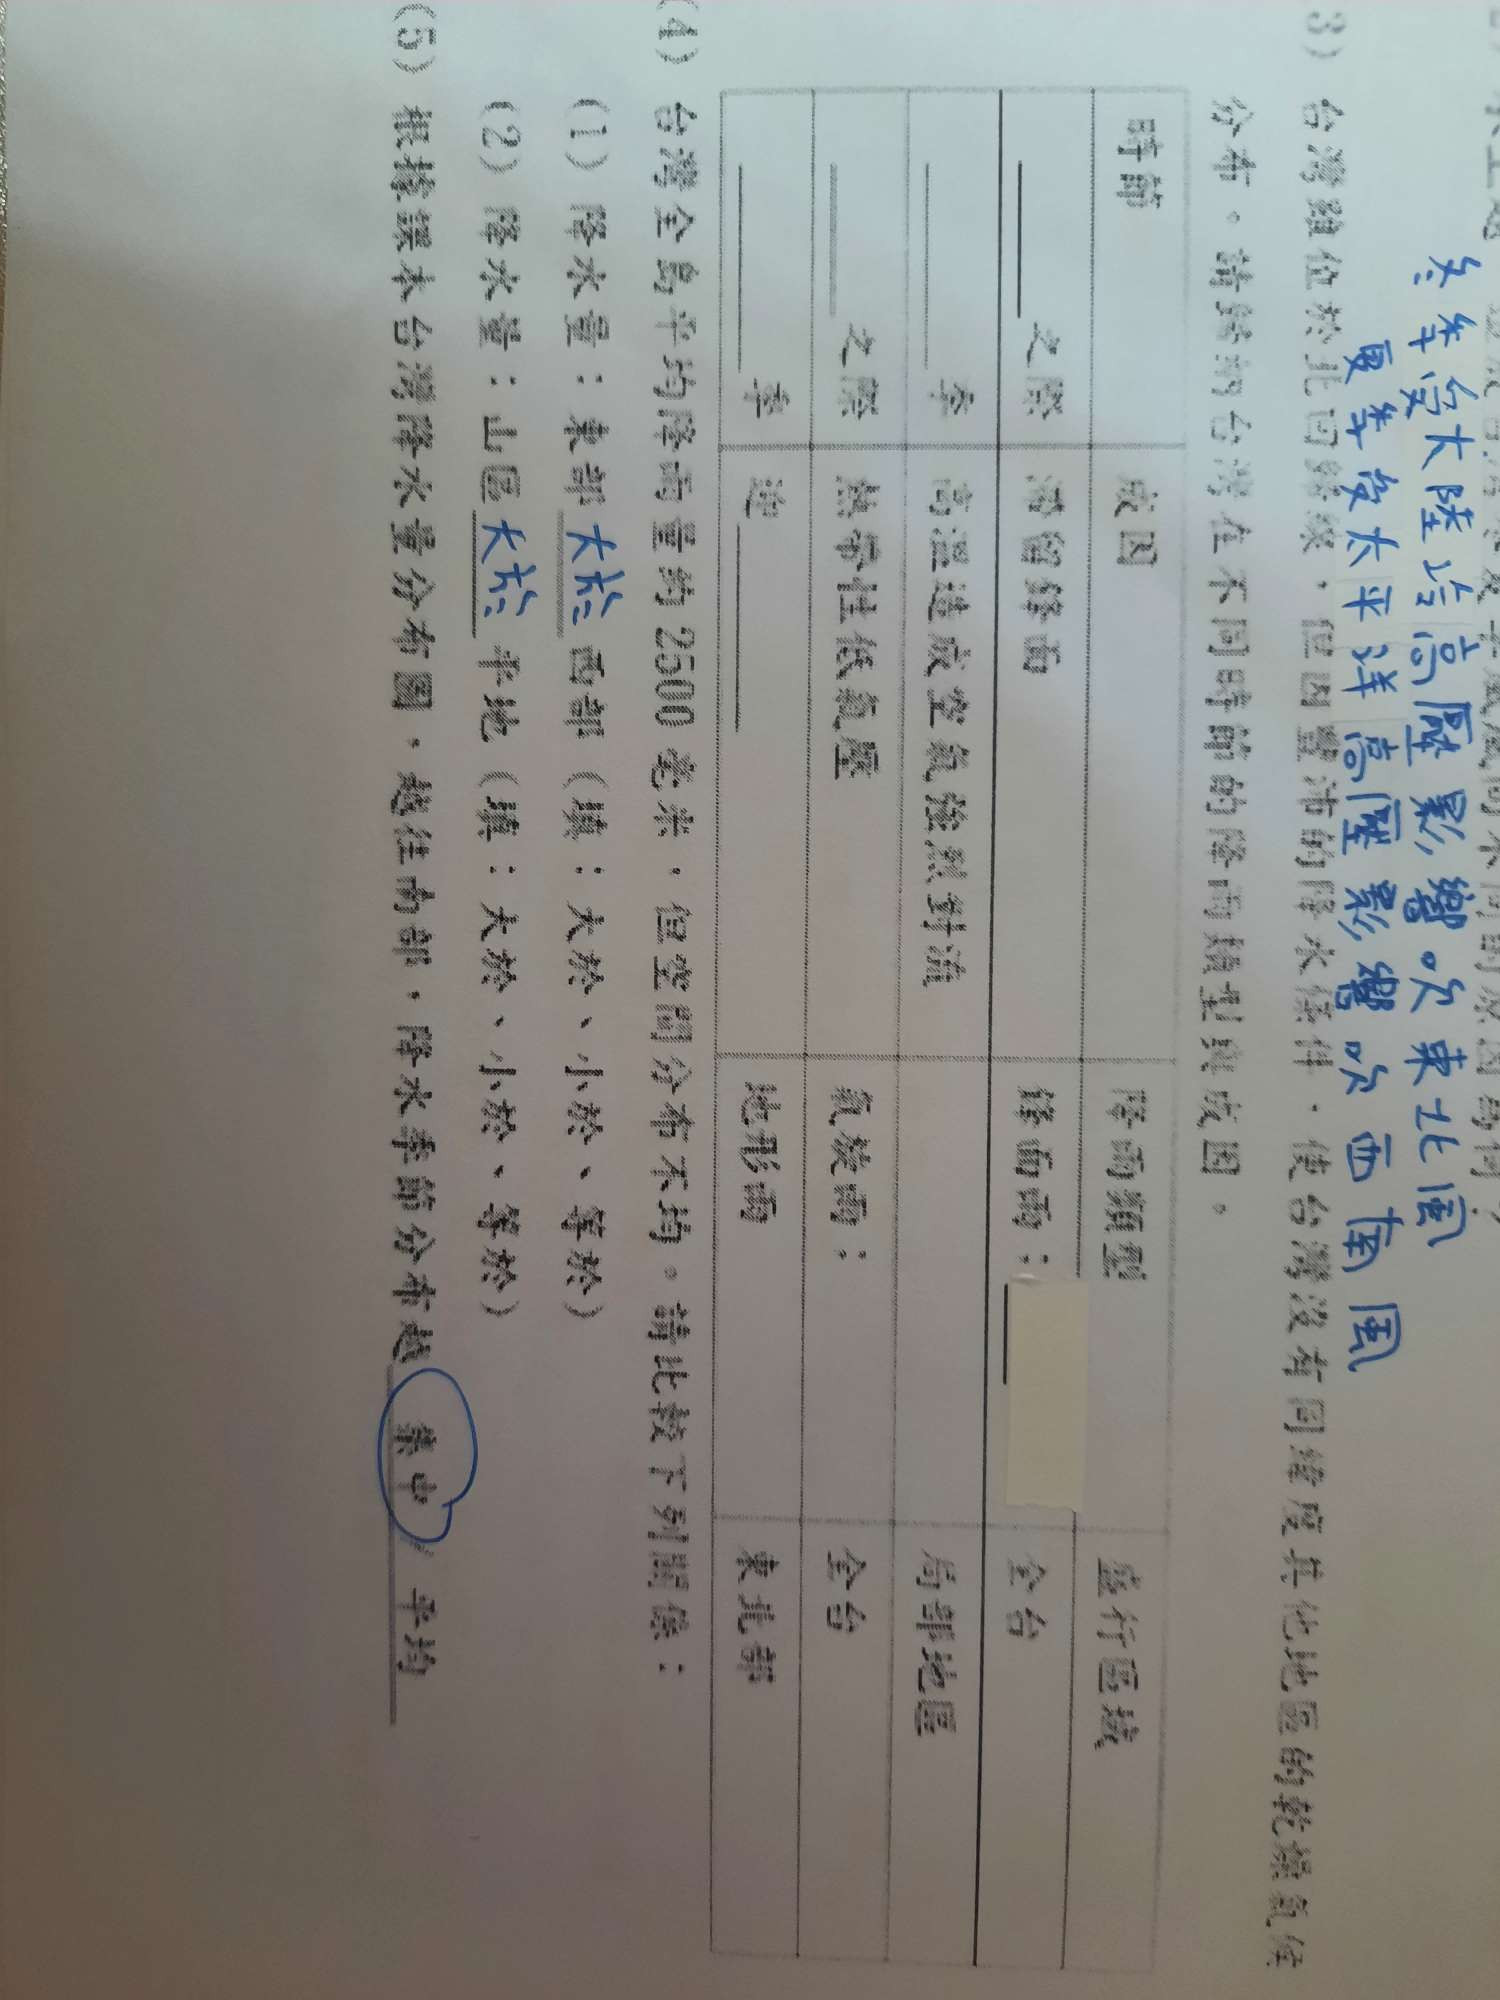 冬季受大陸冷高壓影響吹東北風
夏季受太平洋高壓影響吹西南風
3) 台灣雖位於北回歸線，但因豐沛的降水條件，使台灣沒有同緯度其他地區的乾燥氣候
分布。請歸納台灣在不同時節的降雨類型與成因。
時節 成因 降雨類型 盛行區域
____之際 滯留鋒面 鋒面雨：____ 全台
____季 高溫造成空氣強烈對流 局部地區
____之際 熱帶性低氣壓 氣旋雨： 全台
____季 迎____ 地形雨 東北部
(4) 台灣全島平均降雨量約2500毫米，但空間分布不均。請比較下列關係：
(1) 降水量：東部 大於 西部 (填：大於、小於、等於)
(2) 降水量：山區 大於 平地 (填：大於、小於、等於)
(5) 根據課本台灣降水量分布圖，越往南部，降水季節分布越 集中/平均